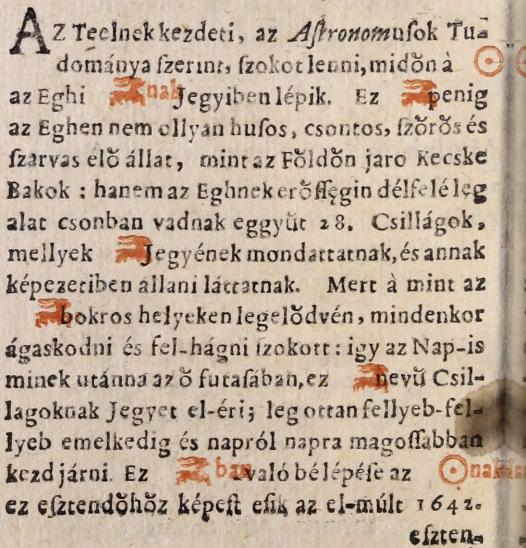 AZ Teelnek kezdeti, az Aſtronomuſok Tu-
dománya ſzerint, ſzokot lenni, midŏn à ☉
az Eghi ♑nak Jegyiben lépik. Ez ♑ penig
az Eghen nem ollyan huſos, csontos, ſzŏrŏs és
ſzarvas élŏ állat, mint az Fŏldŏn jaro Kecske
Bakok : hanem az Eghnek erŏſſęgin délfelé lęg
alat csonban vadnak eggyŭt 28. Csillágok,
mellyek ♑ Jegyének mondattatnak, és annak
képezetiben állani láttatnak. Mert à mint az
♑ bokros helyeken legelŏdvén, mindenkor
ágaskodni és fel-hágni ſzokott : igy az Nap-is
minek utánna az ŏ futaſában, ez ♑ nevŭ Csil-
lagoknak Jegyet el-éri; leg ottan fellyeb-fel-
lyeb emelkedig és napról napra magoſſabban
kezd járni. Ez ♑ ban való bé lépéſe az ☉nak
ez eſztendŏhŏz képeſt eſik az el-múlt 1642.
eſzten-